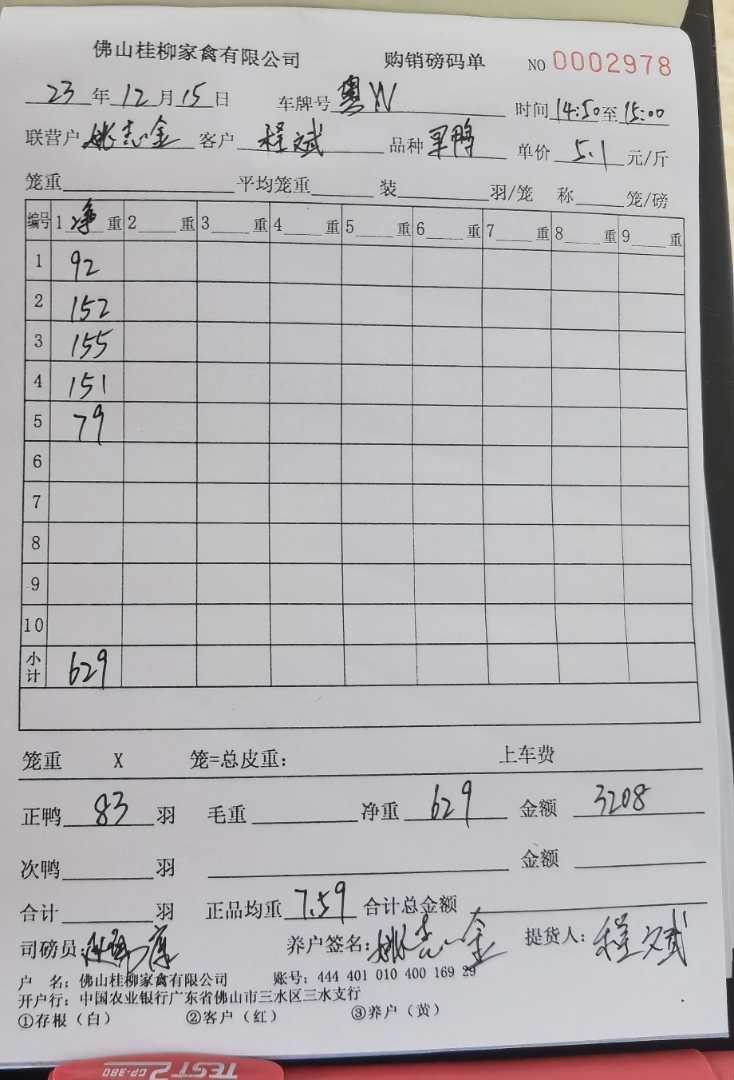 佛山桂柳家禽有限公司 购销磅码单 NO 0002978
23 年 12 月 15 日 车牌号 粤W 时间 14:50 至 15:00
联营户 姚志金 客户 程斌 品种 单价 5.1 元/斤
笼重 平均笼重 装 羽/笼 称 笼/磅
编号 1 净 重 2 重 3 重 4 重 5 重 6 重 7 重 8 重 9 重
1 92
2 152
3 155
4 151
5 79
6
7
8
9
10
小计 629
笼重 X 笼=总皮重: 上车费
正鸭 83 羽 毛重 净重 629 金额 3208
次鸭 羽 金额
合计 羽 正品均重 7.59 合计总金额
司磅员: 养户签名: 姚志金 提货人: 程斌
户 名: 佛山桂柳家禽有限公司 账号: 444 401 010 400 169 29
开户行: 中国农业银行广东省佛山市三水区三水支行
①存根(白) ②客户(红) ③养户(黄)
TEST2 GP-380